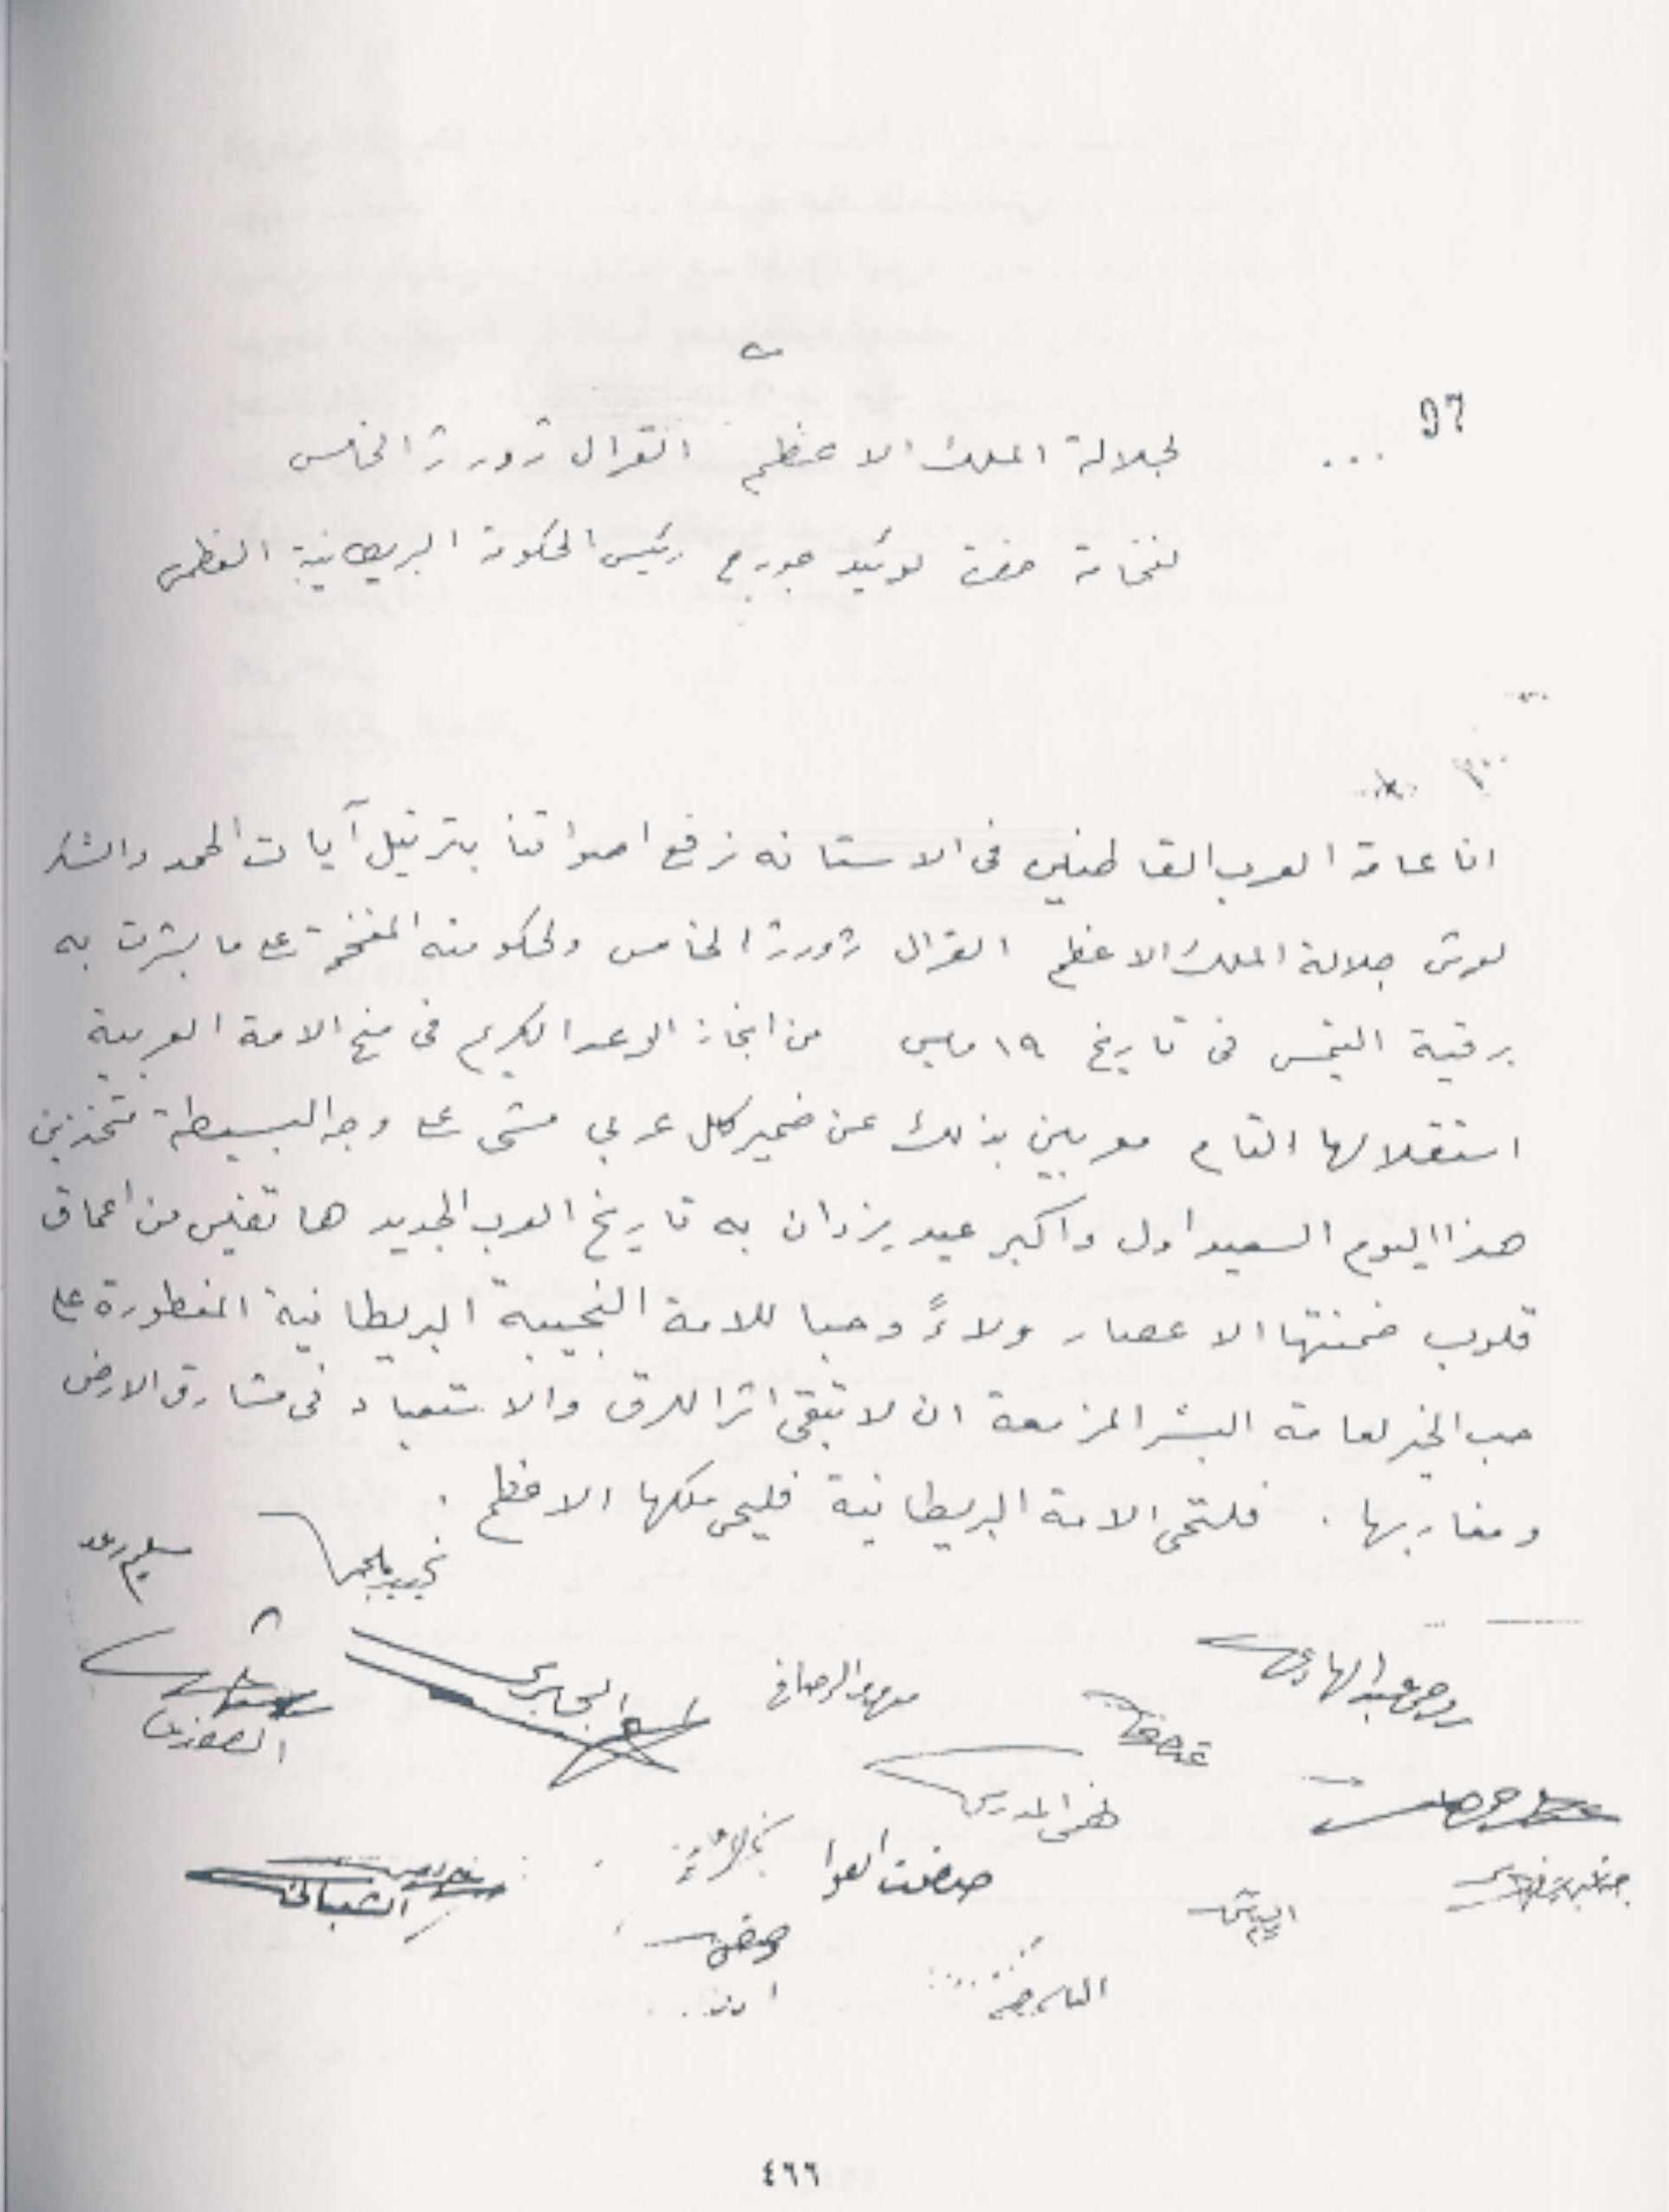 97
لجلالة الملك الاعظم القرال ژورژ الخامس
لفخامة حضرت لوئيد جورج رئيس الحكومة البريطانية العظمى
انا عامة العرب القاطنين فى الاستانه نرفع اصواتنا بترتيل آيات الحمد والشكر
لعرش جلالة الملك الاعظم القرال ژورژ الخامس ولحكومته المفخمة على ما بشرت به
برقية التيمس فى تاريخ ١٩ مايس من انجاز الوعد الكريم فى منح الامة العربية
استقلالها التام معربين بذلك عن ضمير كل عربي مشى على وجه البسيطة متخذين
هذا اليوم السعيد اول واكبر عيد يزدان به تاريخ العرب الجديد هاتفين من اعماق
قلوب ضمنتها الاعصار ولاءً وحبا للامة النجيبة البريطانية المفطورة على
حب الخير لعامة البشر المزمعة ان لا تبقى اثرا للرق والاستعباد فى مشارق الارض
ومغاربها . فلتحى الامة البريطانية فليحى ملكها الاعظم .
نجيب ملحمه
سليم رعد
روحى عبد الهادى
معروف الرصافى
الجابرى
فهمى المدرس
صفوت العوا
الشيبانى
٤٦٦